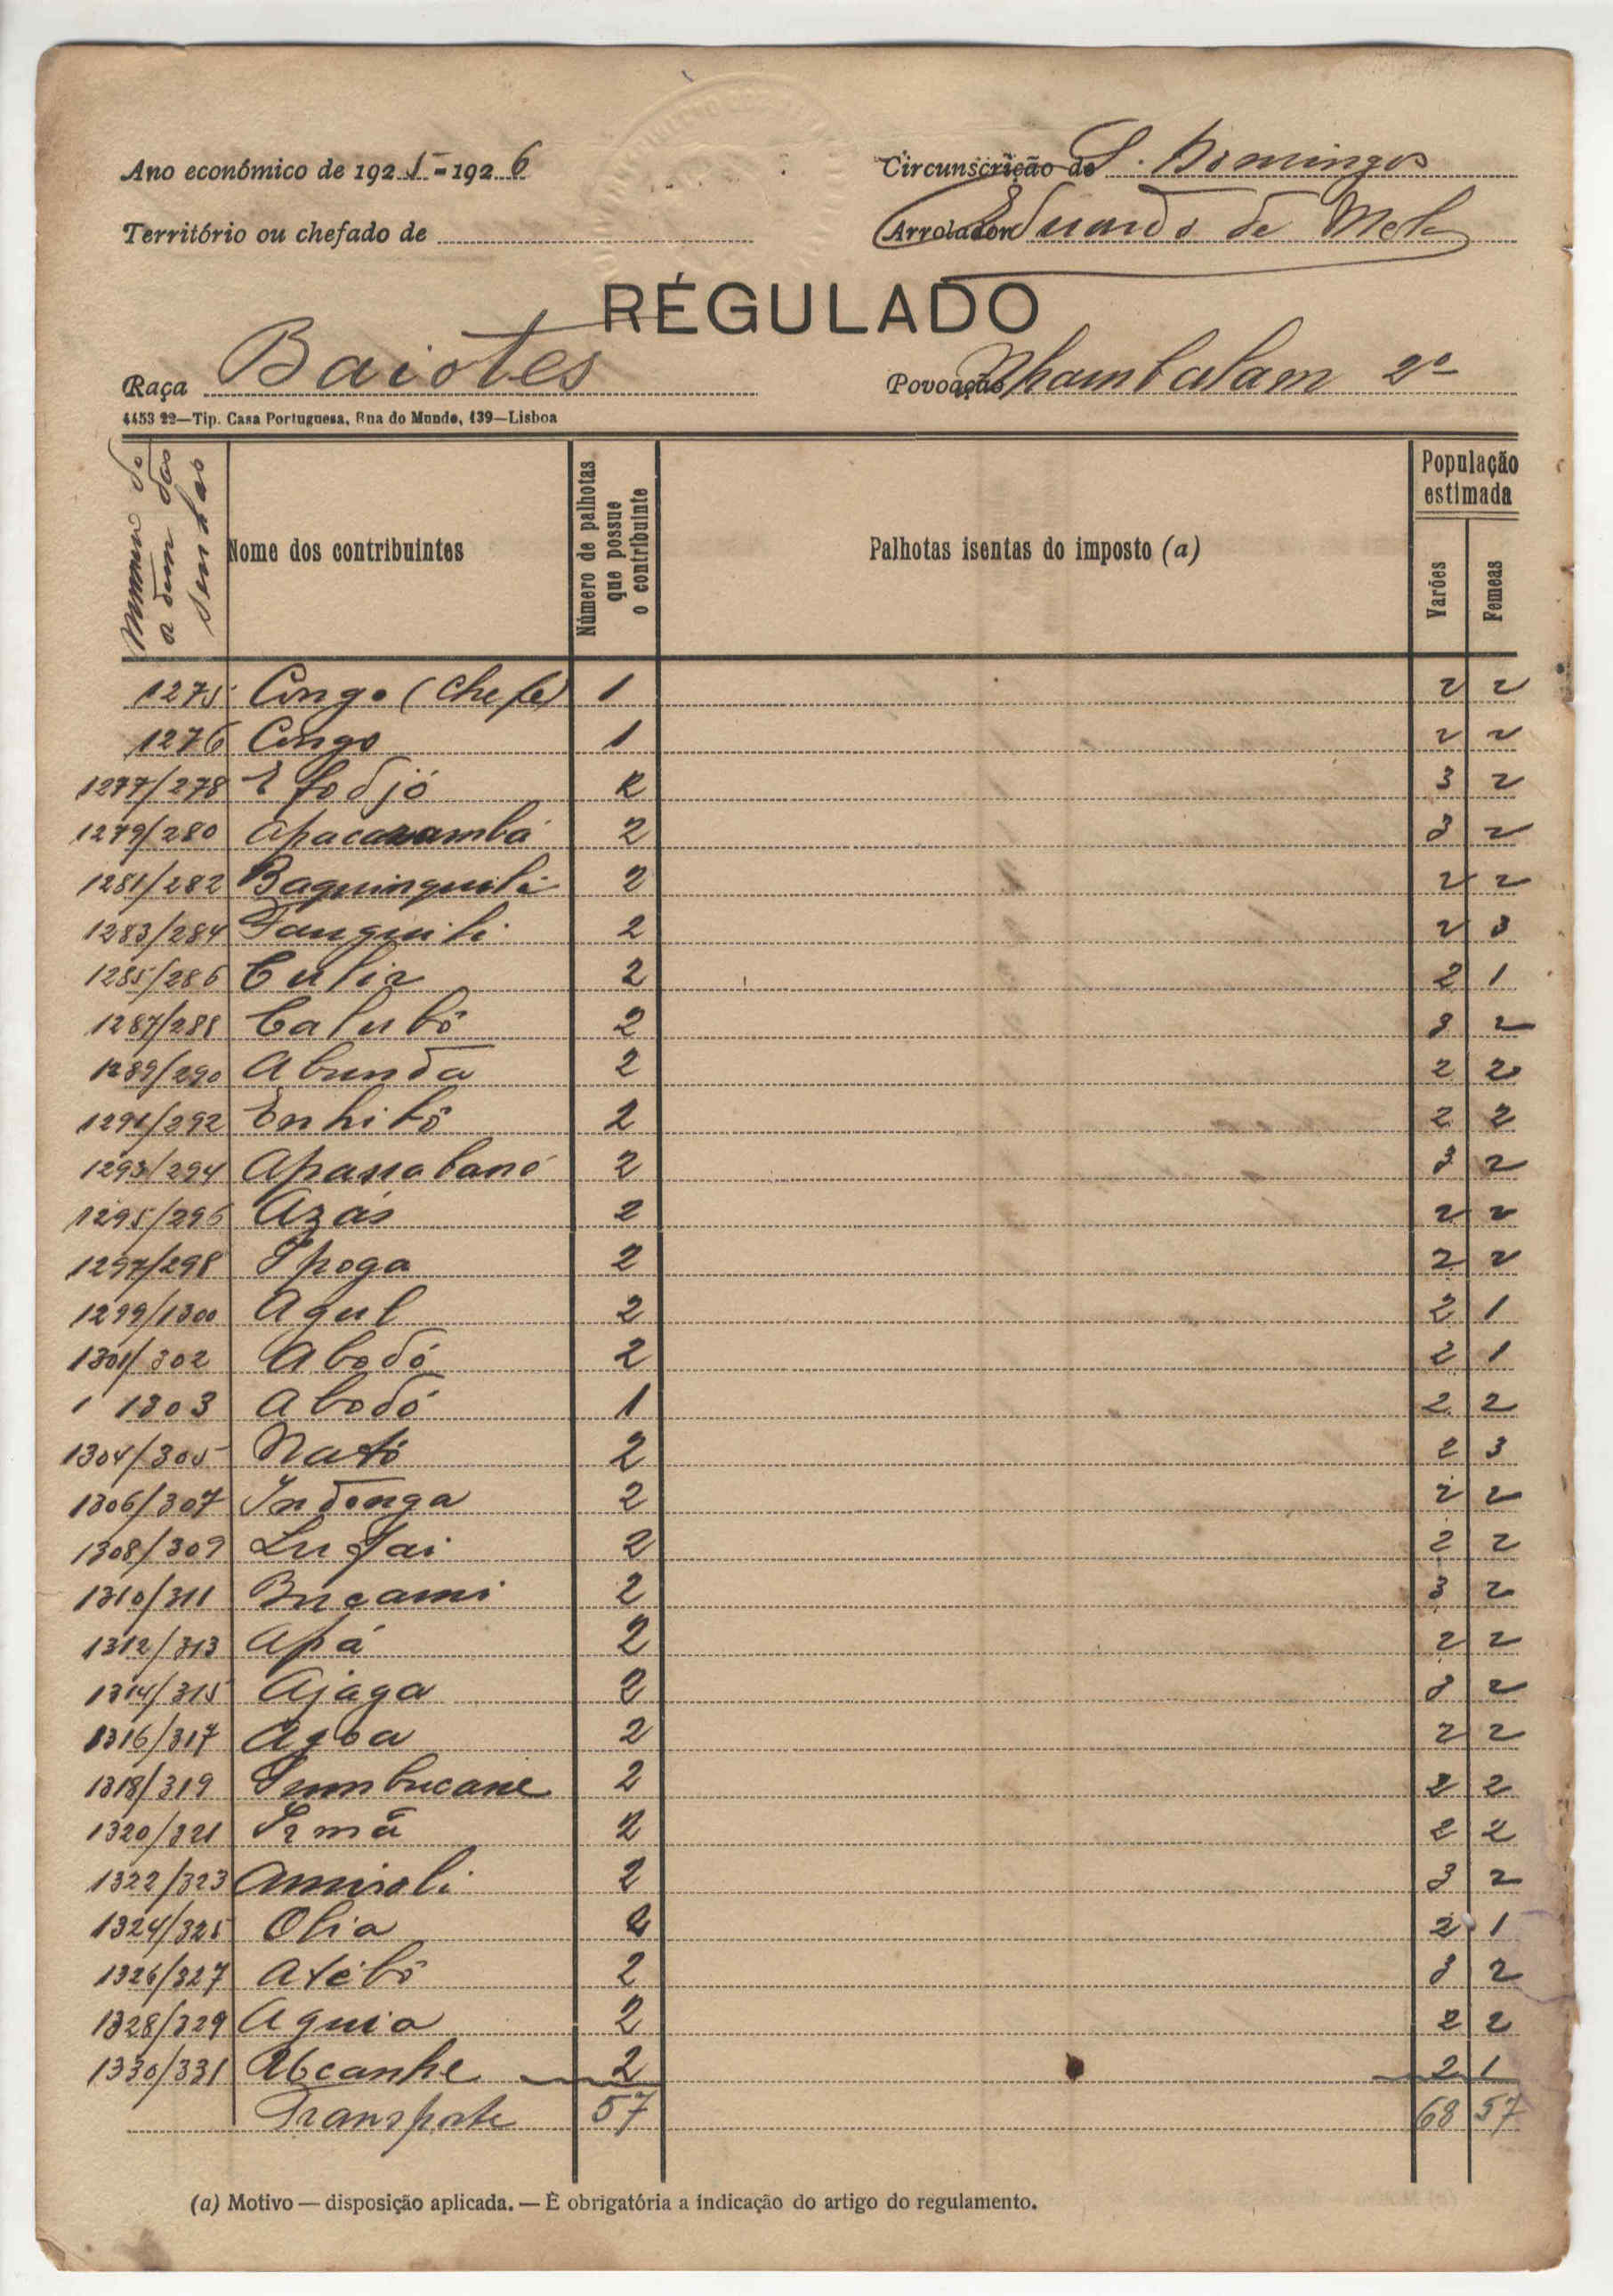 Ano económico de 1925-1926
Circunscrição de S. Domingos
Território ou chefado de
Arrolador Eduardo de Melo
RÉGULADO
Raça Baiotes
Povoação Nhambalam 2º
4453 22—Tip. Casa Portuguesa, Rua do Mundo, 139—Lisboa
Numero de
ordem das
senhas
Nome dos contribuintes
Número de palhotas
que possue
o contribuinte
Palhotas isentas do imposto (a)
População
estimada
Varões
Femeas
1275 Congo (Chefe) 1 2 2
1276 Congo 1 2 2
1277/278 Efodjó 2 3 2
1279/280 2 3 2
1281/282 Baquinquili 2 2 2
1283/284 Fanquili 2 2 3
1285/286 Culir 2 2 1
1287/288 Calubô 2 3 2
1289/290 Abunda 2 2 2
1291/292 Enhibô 2 2 2
1293/294 Apassabané 2 3 2
1295/296 Azás 2 2 2
1297/298 Ipoga 2 2 2
1299/1300 Agul 2 2 1
1301/302 Abodó 2 2 1
1303 Abodó 1 2 2
1304/305 Nató 2 2 3
1306/307 Indonga 2 2 2
1308/309 2 2 2
1310/311 Bucami 2 3 2
1312/313 Apá 2 2 2
1314/315 Ajaga 2 3 2
1316/317 Agoa 2 2 2
1318/319 Sumbucane 2 2 2
1320/321 2 2 2
1322/323 2 3 2
1324/325 Olia 2 2 1
1326/327 Atébô 2 3 2
1328/329 Aguia 2 2 2
1330/331 Abcanhe 2 2 1
Transporte 57 68 57
(a) Motivo — disposição aplicada. — É obrigatória a indicação do artigo do regulamento.